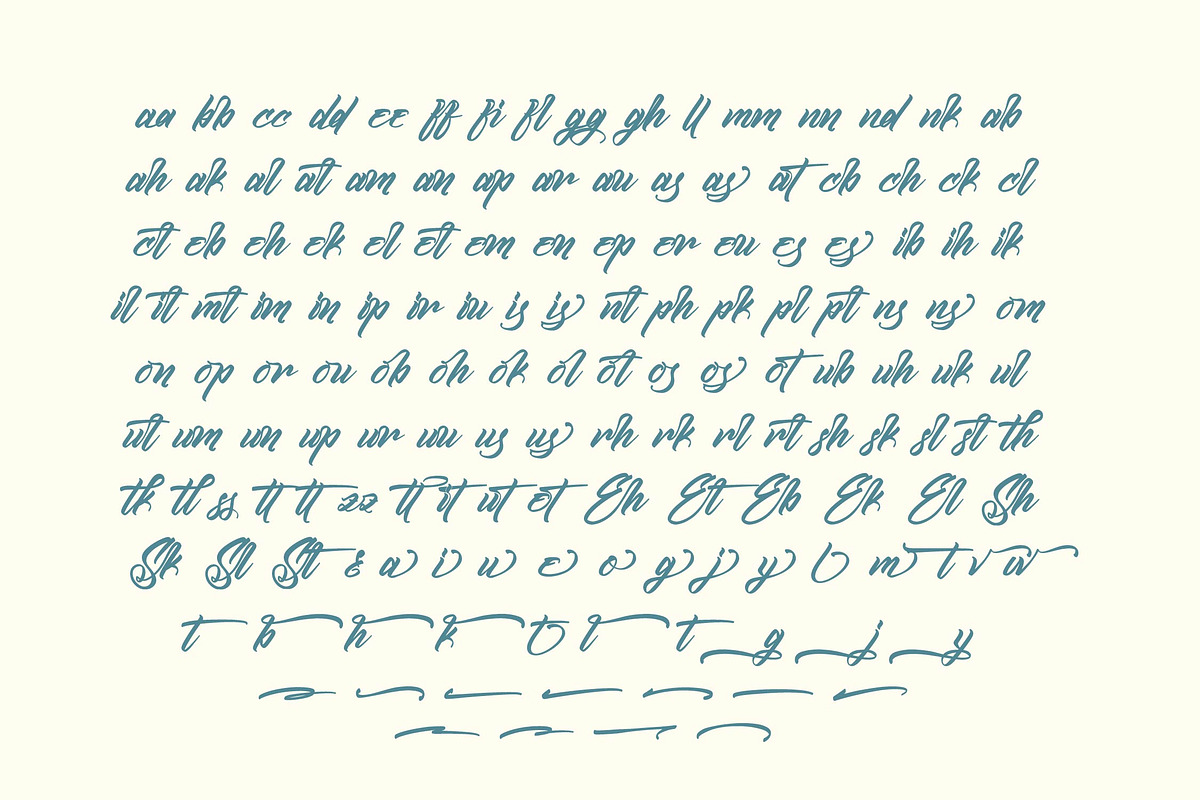 aa bb cc dd ee ff fi fl gg gh ll mm nn nd nk ab
ah ak al at am an ap ar au as as at cb ch ck cl
ct eb eh ek el et em en ep er eu es es ib ih ik
il it mt im in ip ir iu is is nt ph pk pl pt ns ns om
on op or ou ob oh ok ol ot os os ot ub uh uk ul
ut um un up ur uu us us rh rk rl rt sh sk sl st th
tk tl ss tt tt zz tt it ut et Eh Et Eb Ek El Sh
Sk Sl St & a i u e o g j y l m t r w
t b h k t l t g j y